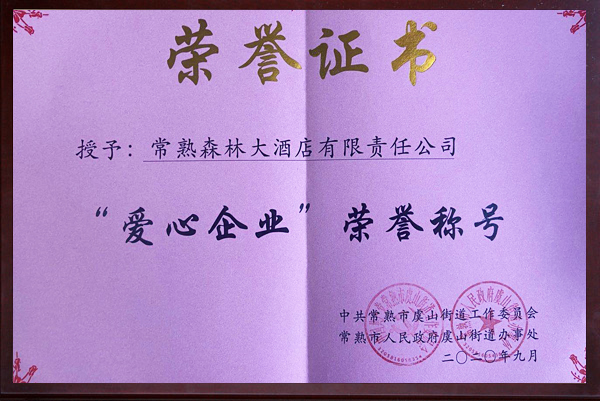 荣誉证书
授予：常熟森林大酒店有限责任公司
“爱心企业”荣誉称号
中共常熟市虞山街道工作委员会
常熟市人民政府虞山街道办事处
二〇二〇年九月